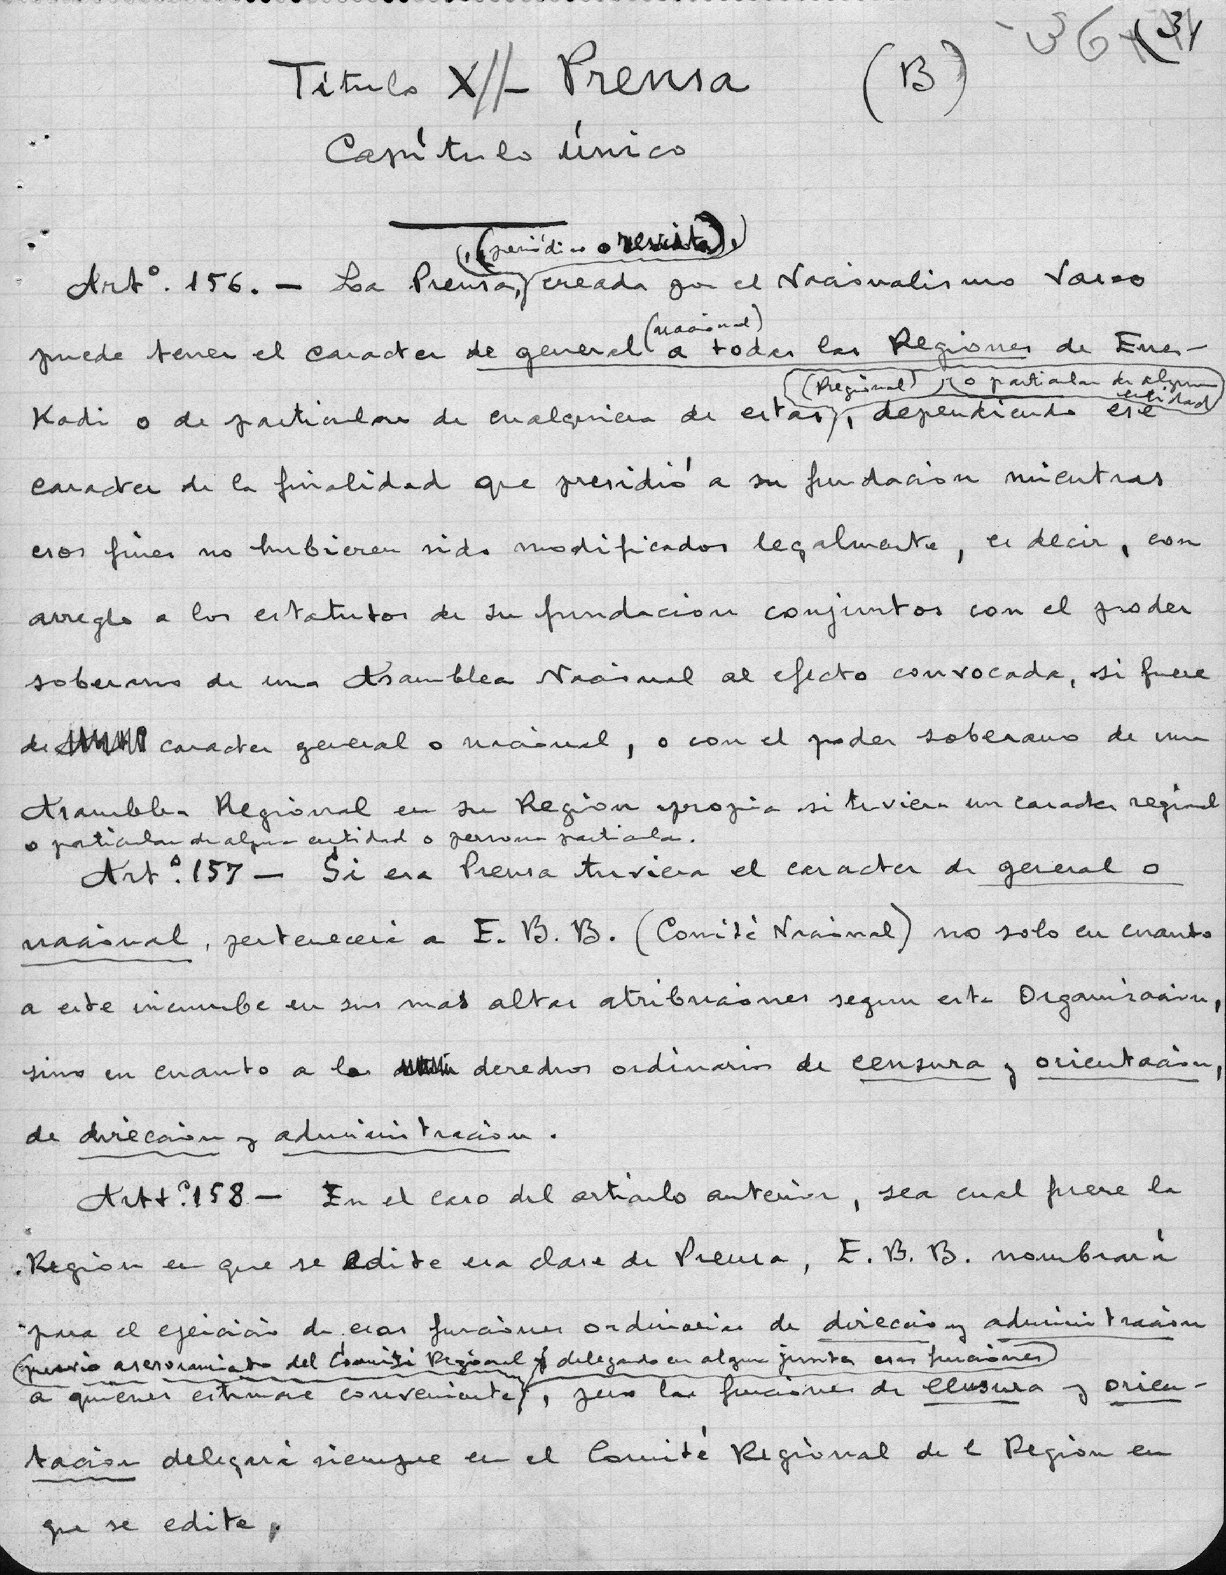 36 (31
Título XII - Prensa (B)
Capítulo único
(periódico o revista),
Artº. 156. - La Prensa, creada por el Nacionalismo Vasco
(nacional)
puede tener el caracter de general a todas las Regiones de Eus-
(Regional), o particular de alguna entidad
Kadi o de particular de cualquiera de estas, dependiendo ese
caracter de la finalidad que presidió a su fundacion mientras
esos fines no hubieren sido modificados legalmente, es decir, con
arreglo a los estatutos de su fundacion conjuntos con el poder
soberano de una Asamblea Nacional al efecto convocada, si fuere
de caracter general o nacional, o con el poder soberano de una
Asamblea Regional en su Region propia si tuviera un caracter regional
o particular de alguna entidad o persona particular.
Artº. 157 - Si esa Prensa tuviera el caracter de general o
nacional, pertenecerá a E. B. B. (Comité Nacional) no solo en cuanto
a este incumbe en sus mas altas atribuciones segun esta Organizacion,
sino en cuanto a los derechos ordinarios de censura y orientacion,
de direccion y administracion.
Artº. 158 - En el caso del articulo anterior, sea cual fuere la
Region en que se edite esa clase de Prensa, E. B. B. nombrará
para el ejercicio de esas funciones ordinarias de direccion y administracion
previo asesoramiento del Comité Regional y delegado en alguna junta esas funciones
a quienes estimare conveniente, pero las funciones de censura y orien-
tacion delegará siempre en el Comité Regional de l Region en
que se edite.